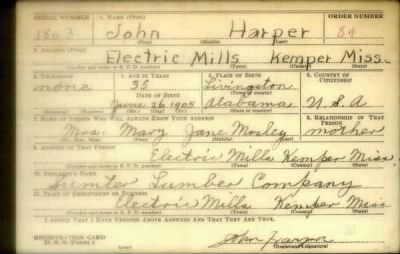 SERIAL NUMBER 1. NAME (Print) ORDER NUMBER
1803 John Harper 84
(First) (Middle) (Last)
2. ADDRESS (Print)
Electric Mills Kemper Miss.
(Number and street or R. F. D. number) (Town) (County) (State)
3. TELEPHONE 4. AGE IN YEARS 5. PLACE OF BIRTH 6. COUNTRY OF CITIZENSHIP
none 35 Livingston
DATE OF BIRTH (Town or county)
June 26 1905 Alabama U.S.A
(Mo.) (Day) (Yr.) (State or country)
7. NAME OF PERSON WHO WILL ALWAYS KNOW YOUR ADDRESS 8. RELATIONSHIP OF THAT PERSON
Mrs. Mary Jane Mosley mother
(Mr., Mrs., Miss) (First) (Middle) (Last)
9. ADDRESS OF THAT PERSON
Electric Mills Kemper Miss
(Number and street or R. F. D. number) (Town) (County) (State)
10. EMPLOYER'S NAME
Sumter Lumber Company
11. PLACE OF EMPLOYMENT OR BUSINESS
Electric Mills Kemper Miss
(Number and street or R. F. D. number) (Town) (County) (State)
I AFFIRM THAT I HAVE VERIFIED ABOVE ANSWERS AND THAT THEY ARE TRUE.
REGISTRATION CARD
D. S. S. FORM 1 John Harper
(Registrant's signature)